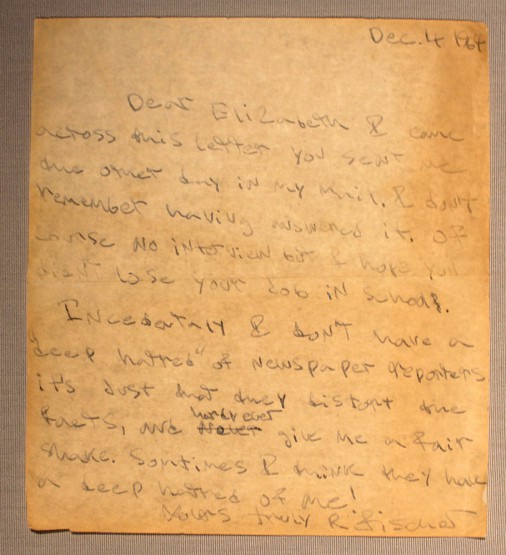 Dec. 4 1964
Dear Elizabeth I came
across this letter you sent me
the other day in my mail. I don't
remember having answered it. Of
course no interview but I hope you
didn't lose your job in school.
Incedentaly I don't have a
"deep hatred" of newspaper reporters
it's Just that they distort the
facts, and hardly ever give me a fair
shake. Somtimes I think they have
a deep hatred of me!
Yours truly R. Fischer